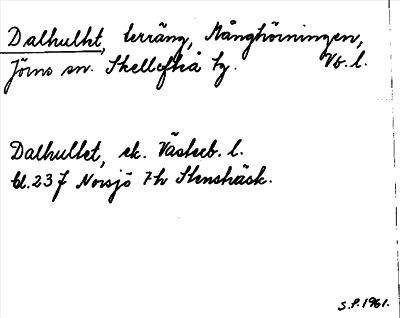 Dalhulht, terräng, Månghörningen,
Jörns sn. Skellefteå tg. Vb. l.
Dalhultet, ek. Västerb. l.
bl. 23 J Norsjö 7h Stensträsk.
S.P. 1961.